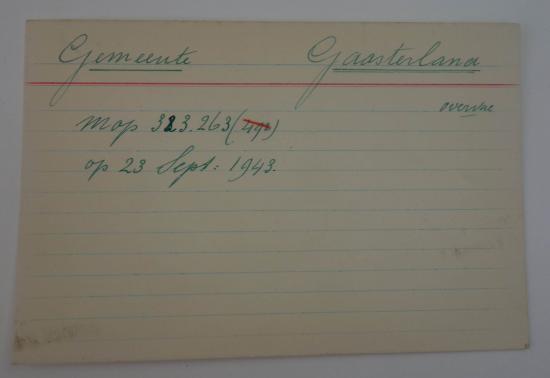 Gemeente Gaasterland
Map 323.263 (
op 23 Sept: 1943.